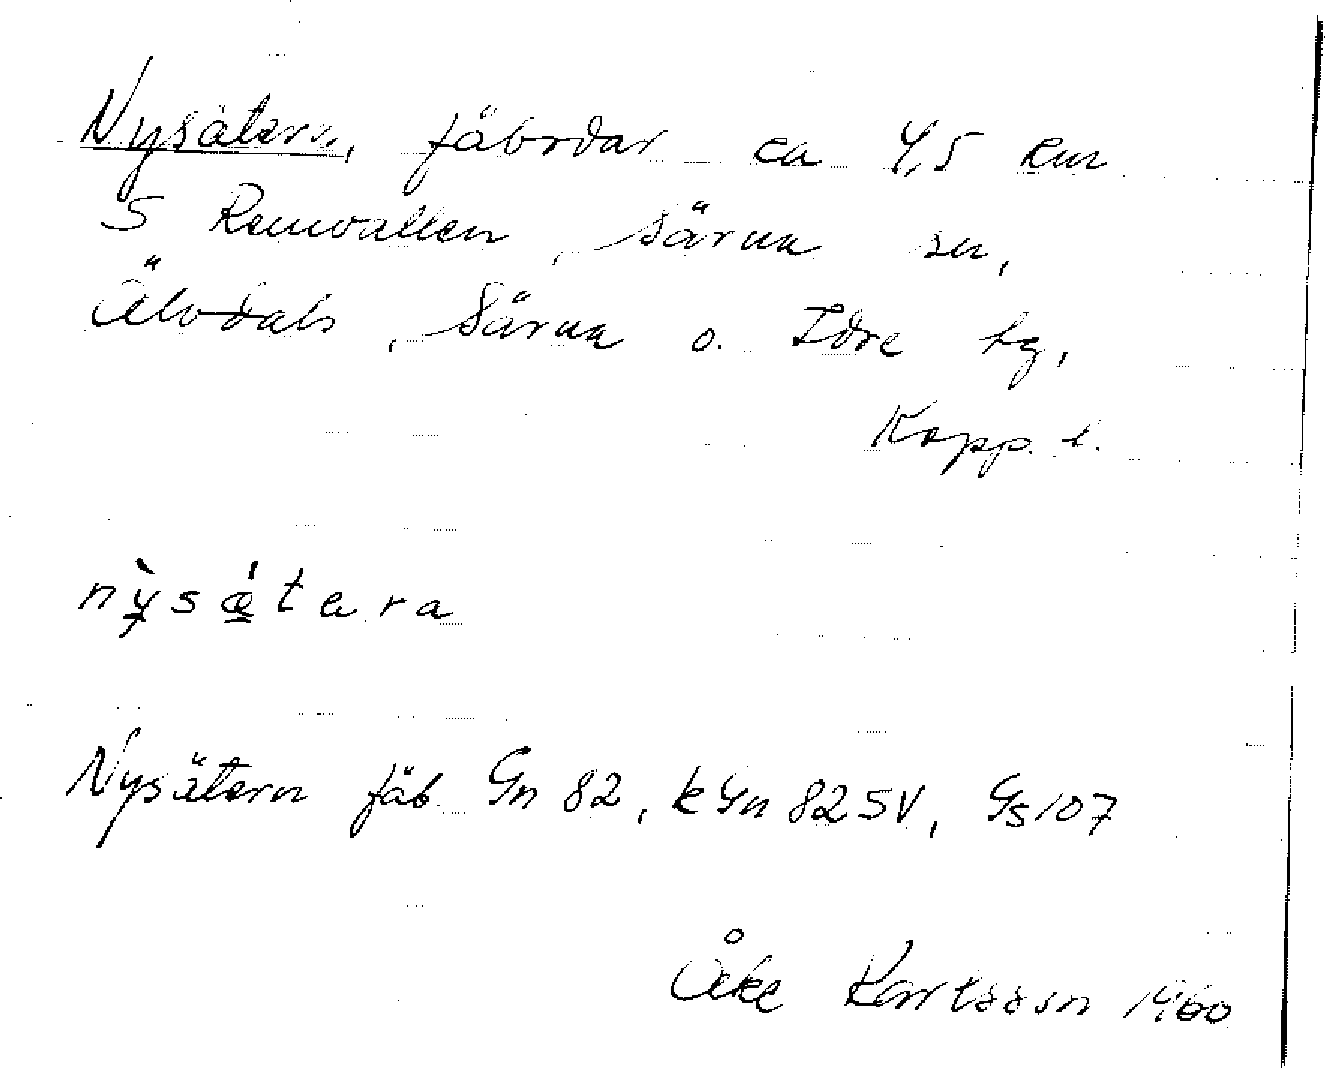 Nysätern, fäbodar ca 4,5 km
S Remvallen, Särna sn,
Älvdals, Särna o. Idre tg,
Kopp. l.
nỳsǽtera
Nysätern fäb Gn 82, kGn 82 SV, Gs 107
Åke Karlsson 1960